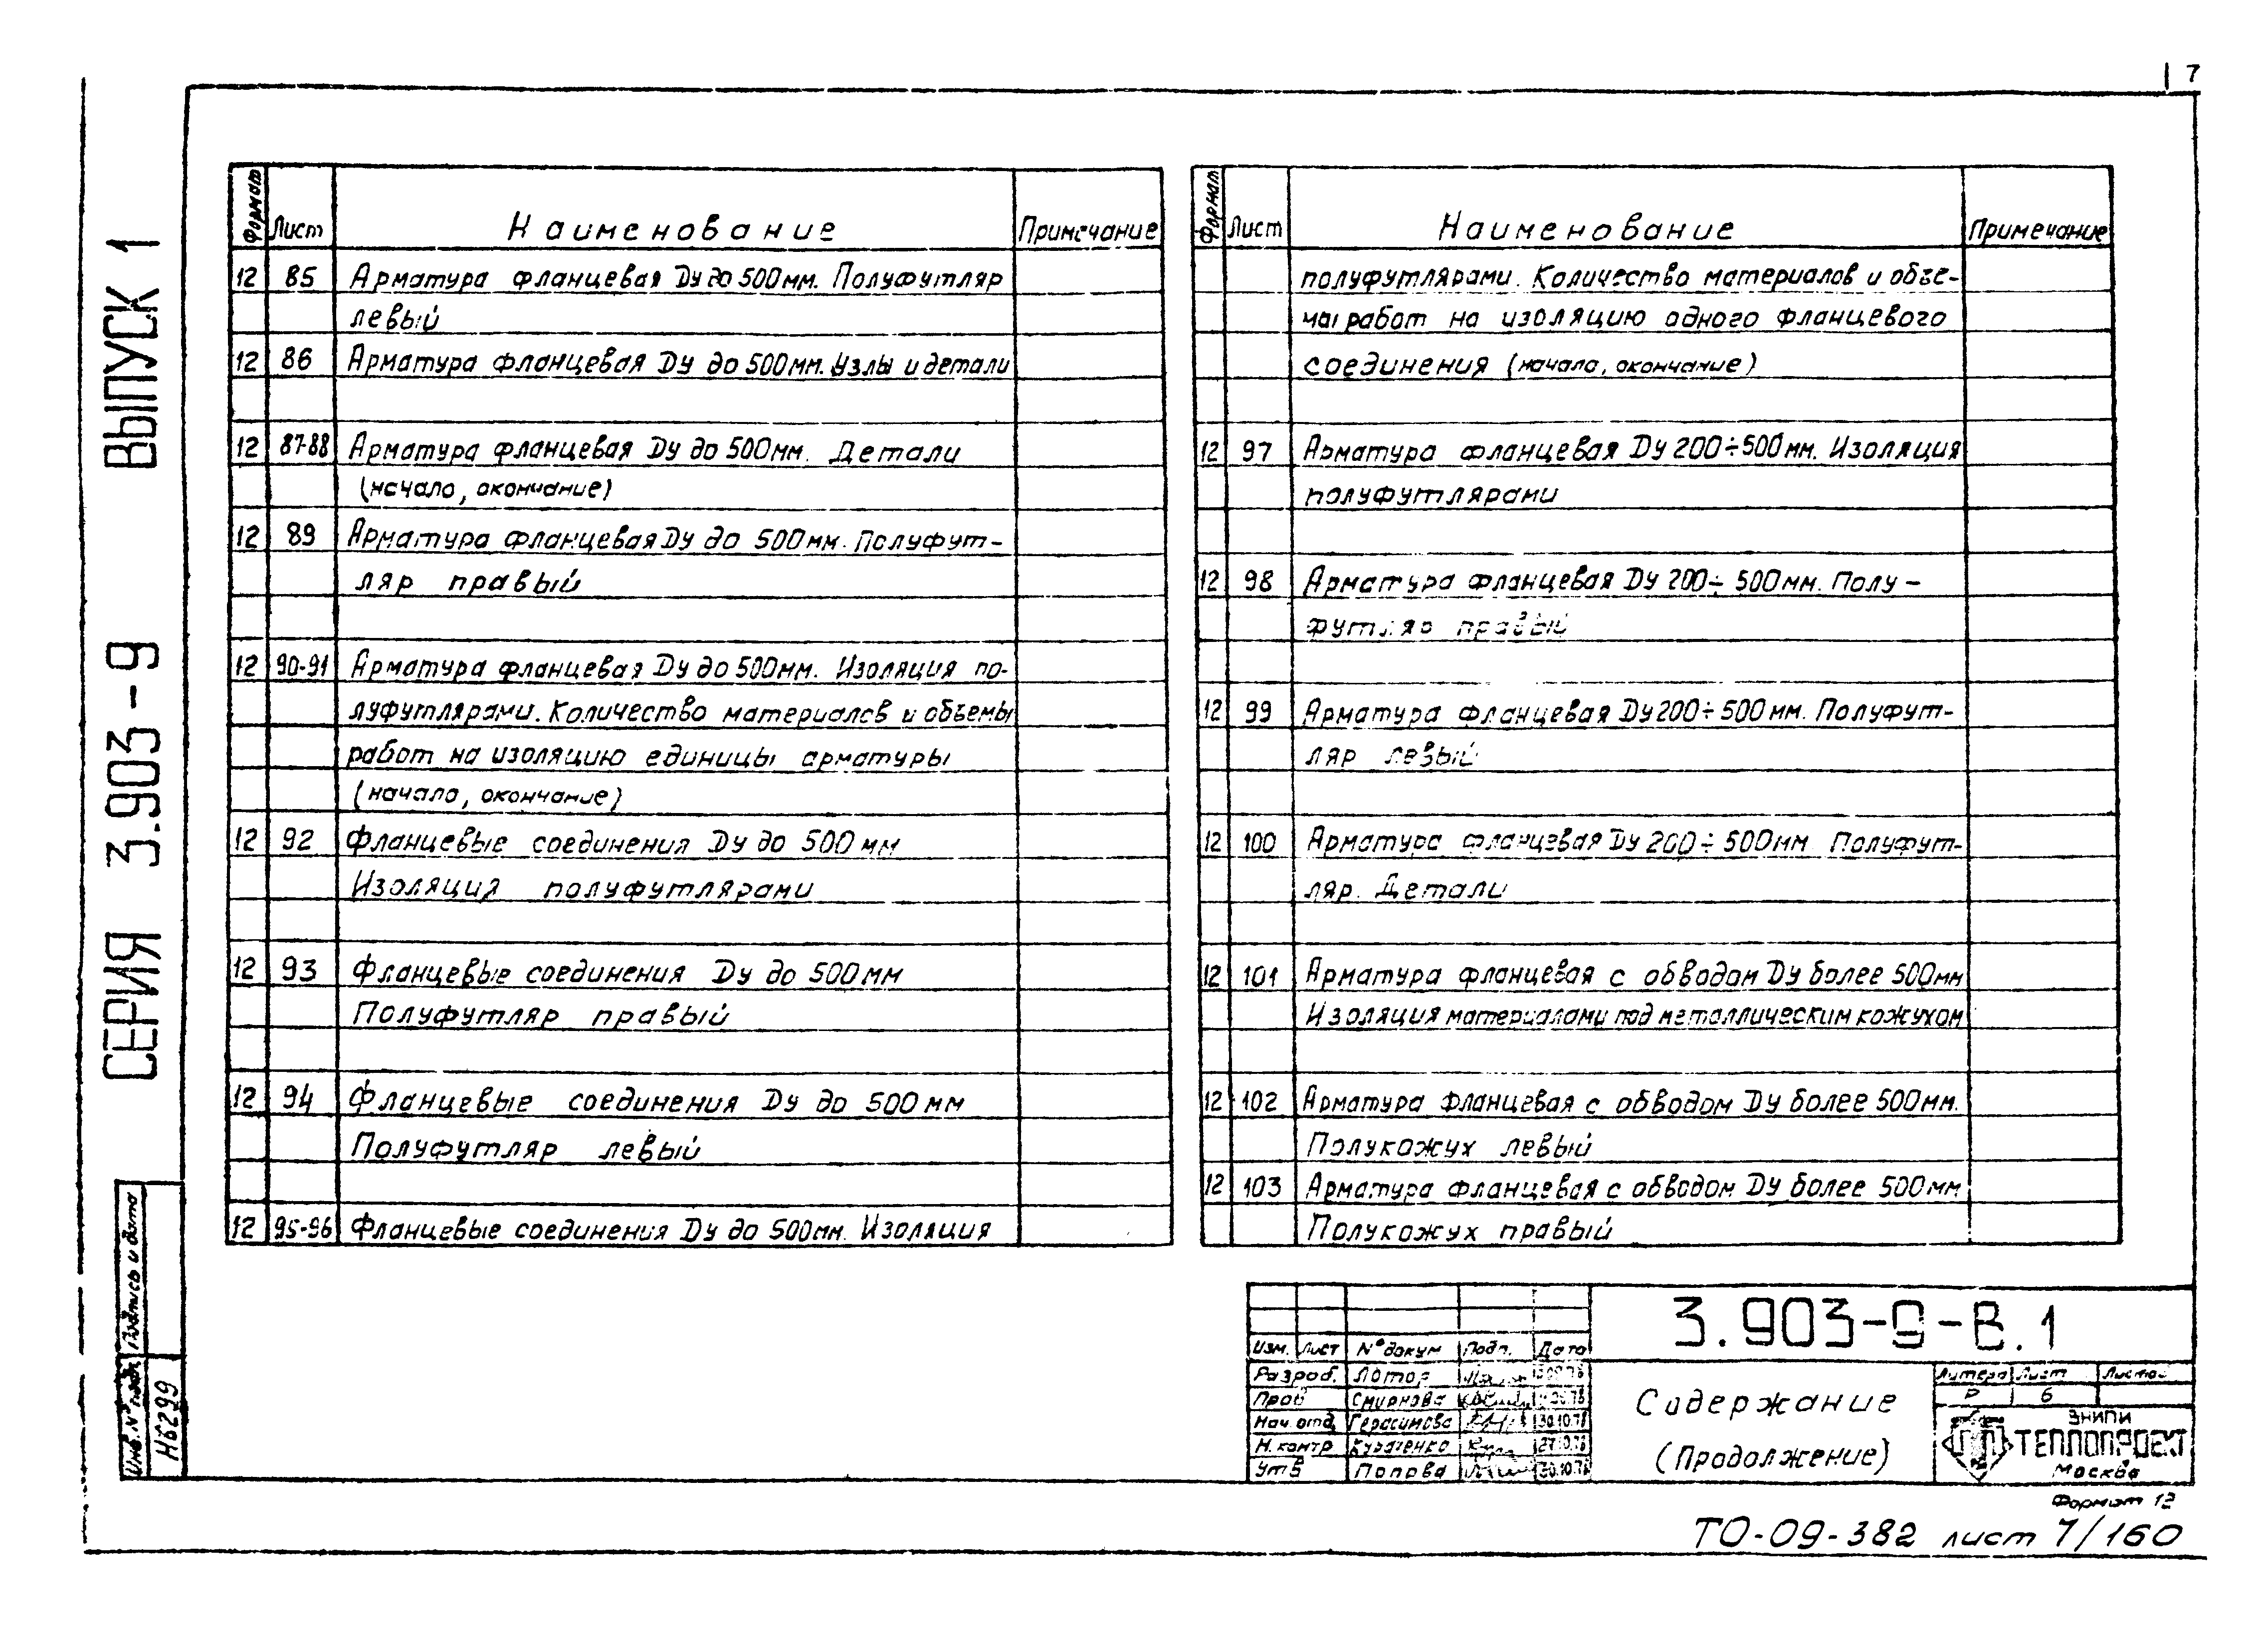 7
СЕРИЯ 3.903-9 ВЫПУСК 1
Формат Лист Наименование Примечание
12 85 Арматура фланцевая Ду до 500мм. Полуфутляр
левый
12 86 Арматура фланцевая Ду до 500мм. Узлы и детали
12 87-88 Арматура фланцевая Ду до 500мм. Детали
(начало, окончание)
12 89 Арматура фланцевая Ду до 500мм. Полуфут-
ляр правый
12 90-91 Арматура фланцевая Ду до 500мм. Изоляция по-
луфутлярами. Количество материалов и объемы
работ на изоляцию единицы арматуры
(начало, окончание)
12 92 Фланцевые соединения Ду до 500мм
Изоляция полуфутлярами
12 93 Фланцевые соединения Ду до 500мм
Полуфутляр правый
12 94 Фланцевые соединения Ду до 500мм
Полуфутляр левый
12 95-96 Фланцевые соединения Ду до 500мм. Изоляция
Формат Лист Наименование Примечание
полуфутлярами. Количество материалов и объе-
мы работ на изоляцию одного фланцевого
соединения (начало, окончание)
12 97 Арматура фланцевая Ду 200÷500мм. Изоляция
полуфутлярами
12 98 Арматура фланцевая Ду 200÷500мм. Полу-
футляр правый
12 99 Арматура фланцевая Ду 200÷500мм. Полуфут-
ляр левый
12 100 Арматура фланцевая Ду 200÷500мм Полуфут-
ляр. Детали
12 101 Арматура фланцевая с обводом Ду более 500мм
Изоляция материалами под металлическим кожухом
12 102 Арматура фланцевая с обводом Ду более 500мм.
Полукожух левый
12 103 Арматура фланцевая с обводом Ду более 500мм
Полукожух правый
Подпись и дата
Инв. № подл.
Н6299
3.903-9-В.1
Изм. Лист № докум Подп. Дата
Разраб. Лотор
Пров Смирнова
Нач. отд. Герасимова 30.10.78
Н. контр 27.10.78
Утв Попова 30.10.78
Содержание
(Продолжение)
Литера Лист Листов
Р 6
ВНИПИ
ТЕПЛОПРОЕКТ
Москва
Формат 12
ТО-09-382 лист 7/160